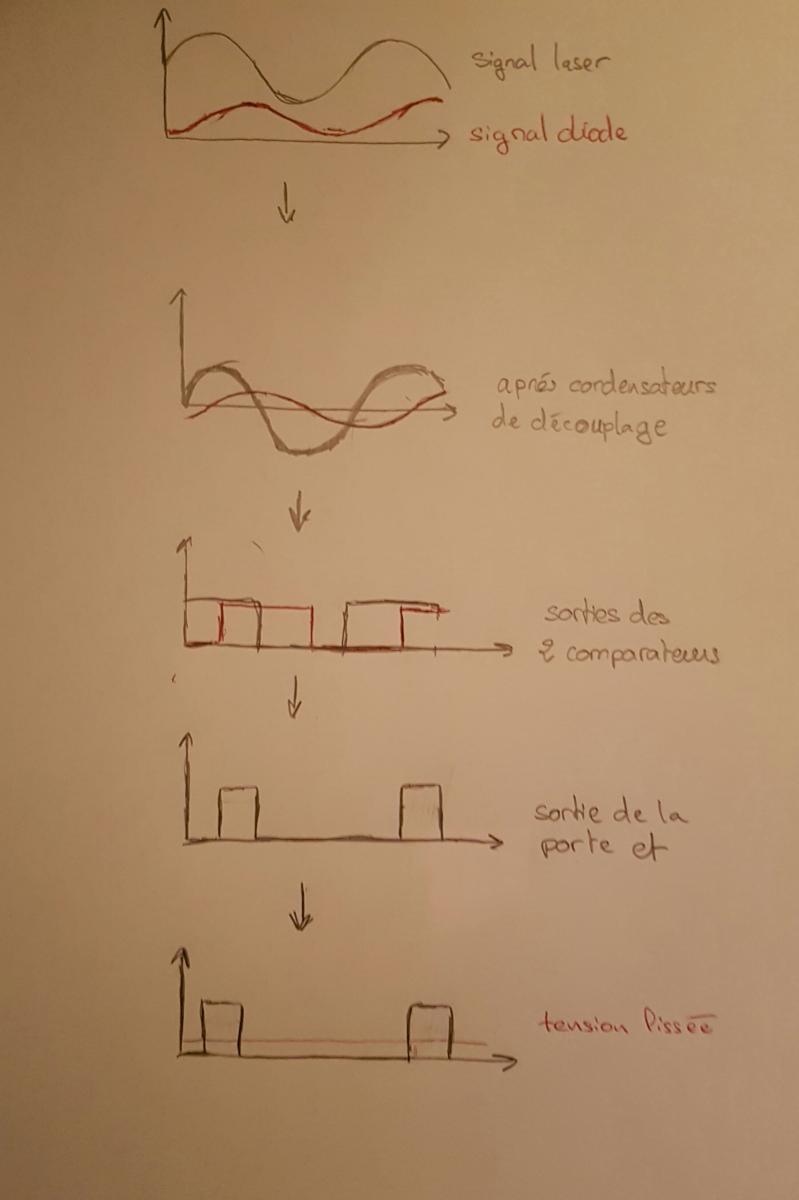 signal laser
signal diode
aprés condensateurs
de découplage
sorties des
2 comparateurs
sortie de la
porte et
tension lissée